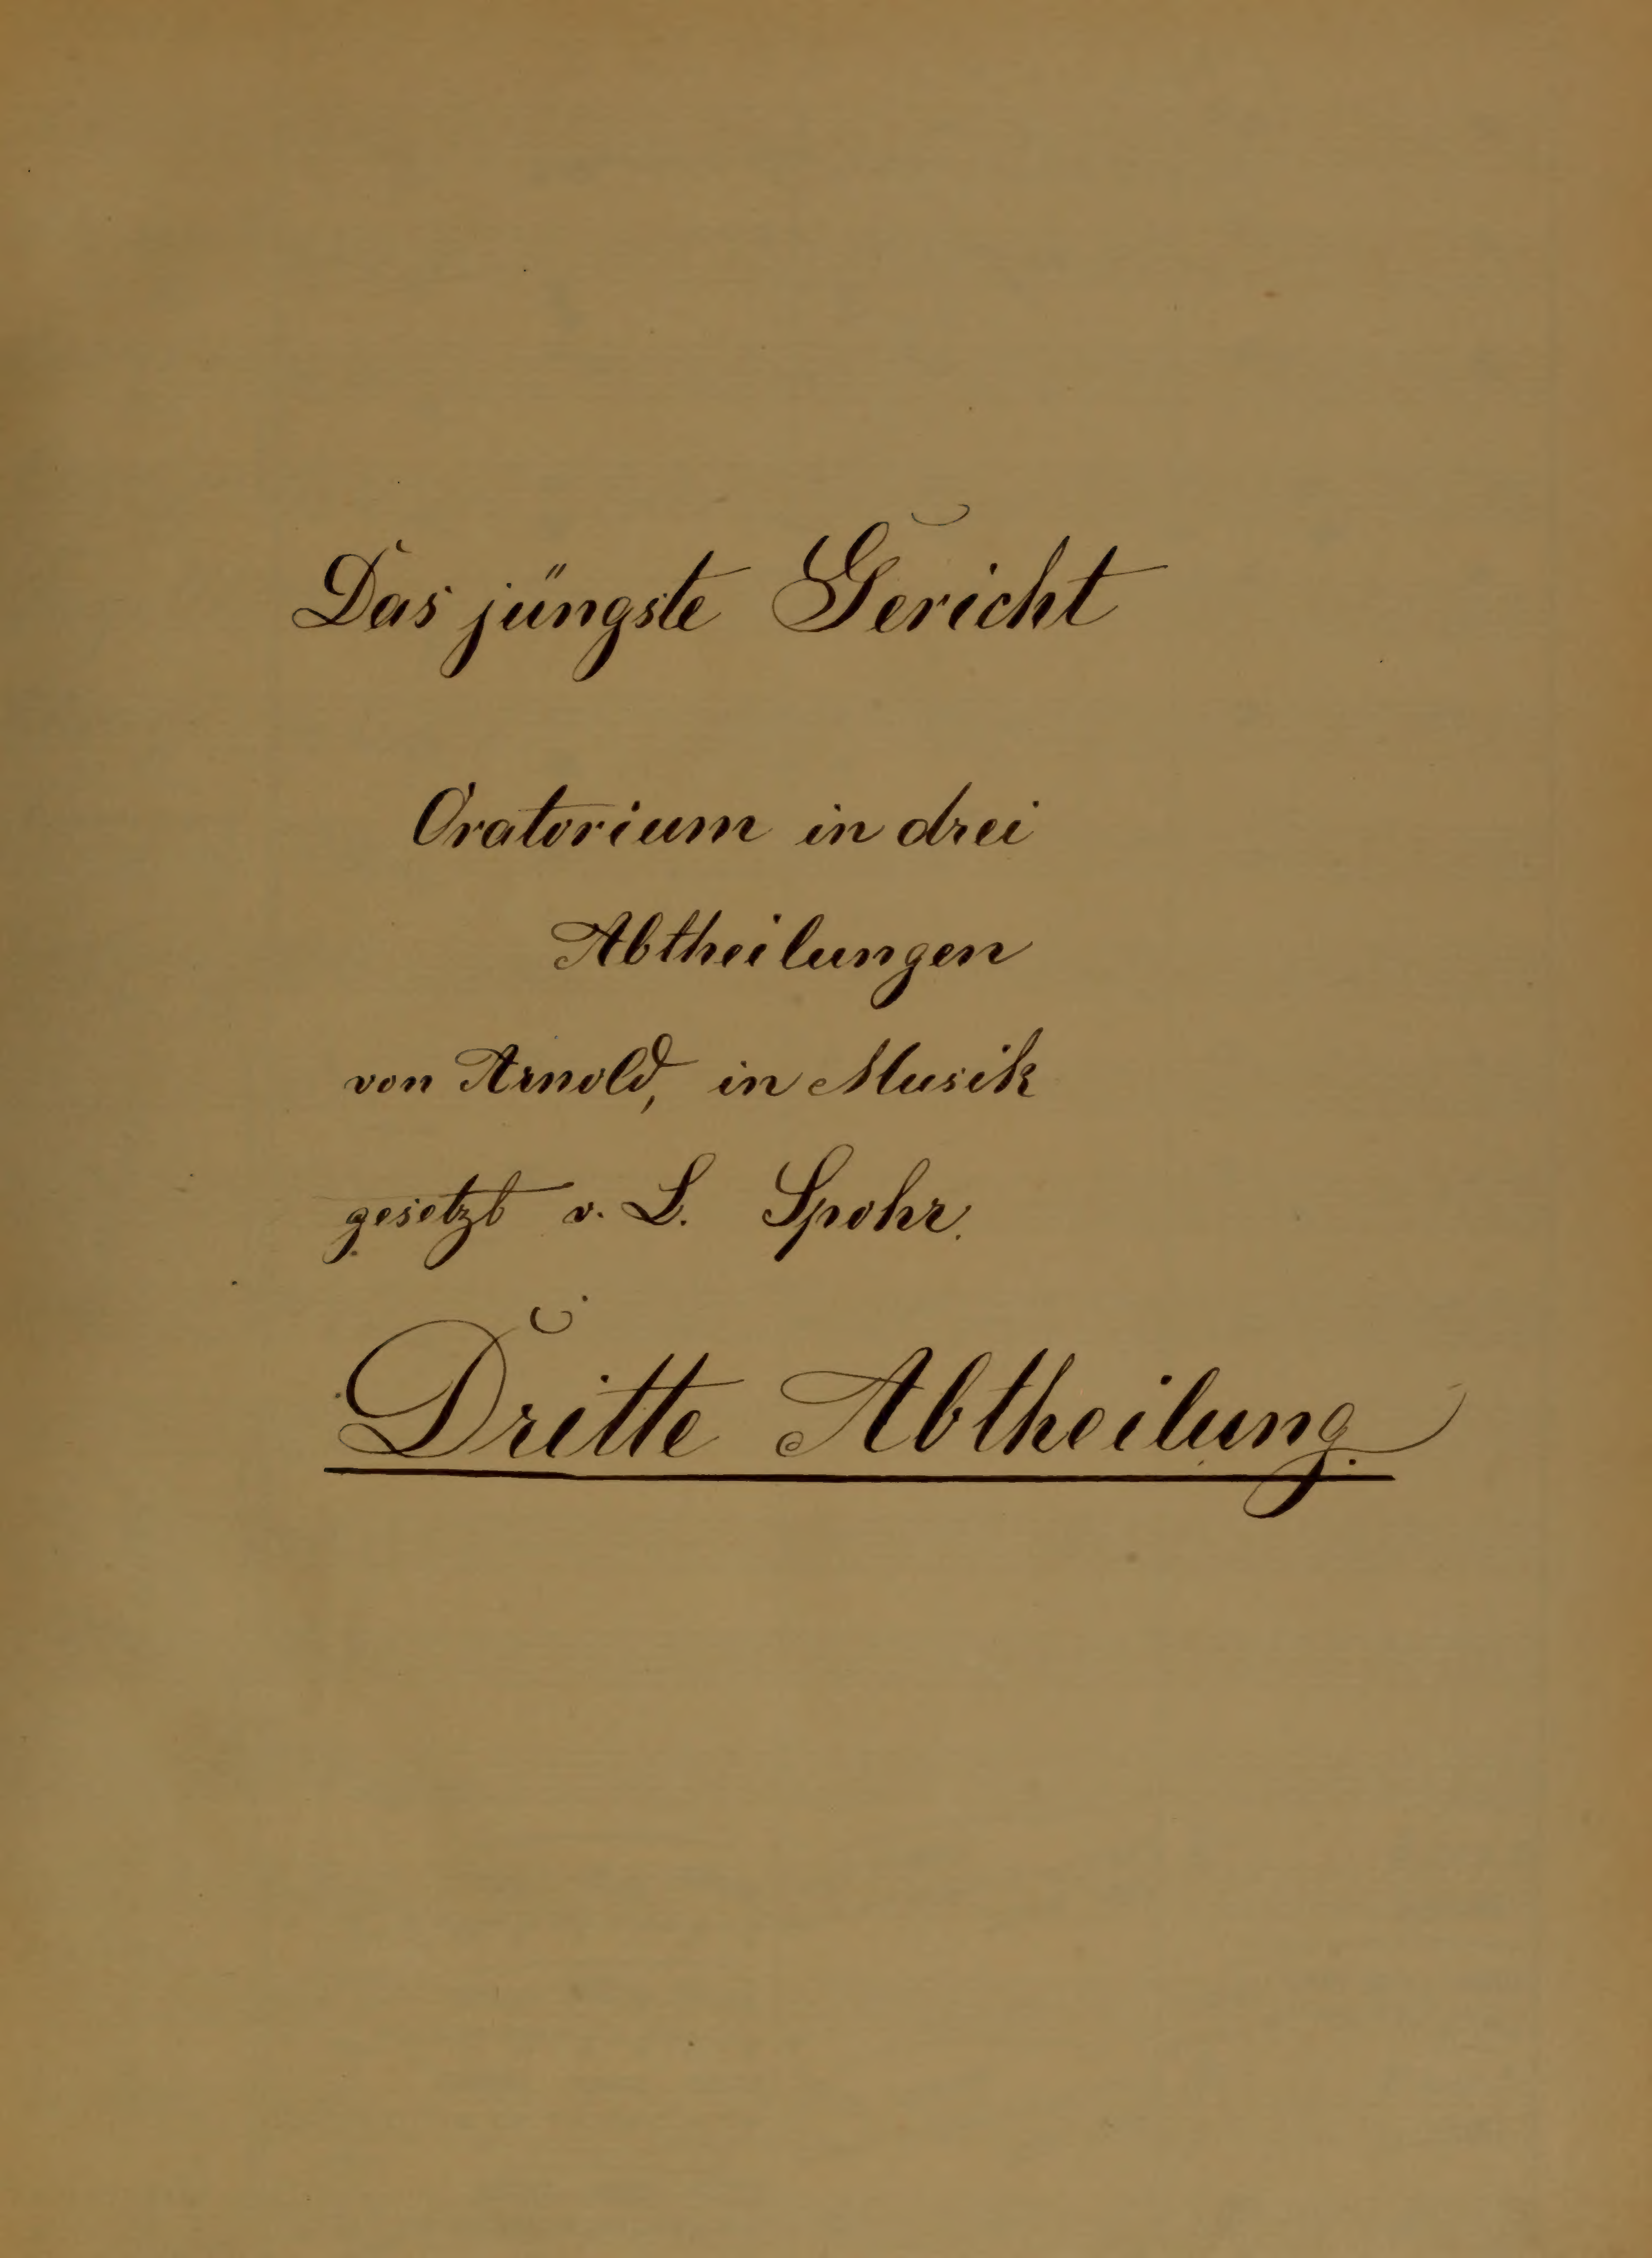 Das jüngste Gericht
Oratorium in drei
Abtheilungen
von Arnold, in Musik
gesetzt v. L. Spohr.
Dritte Abtheilung.